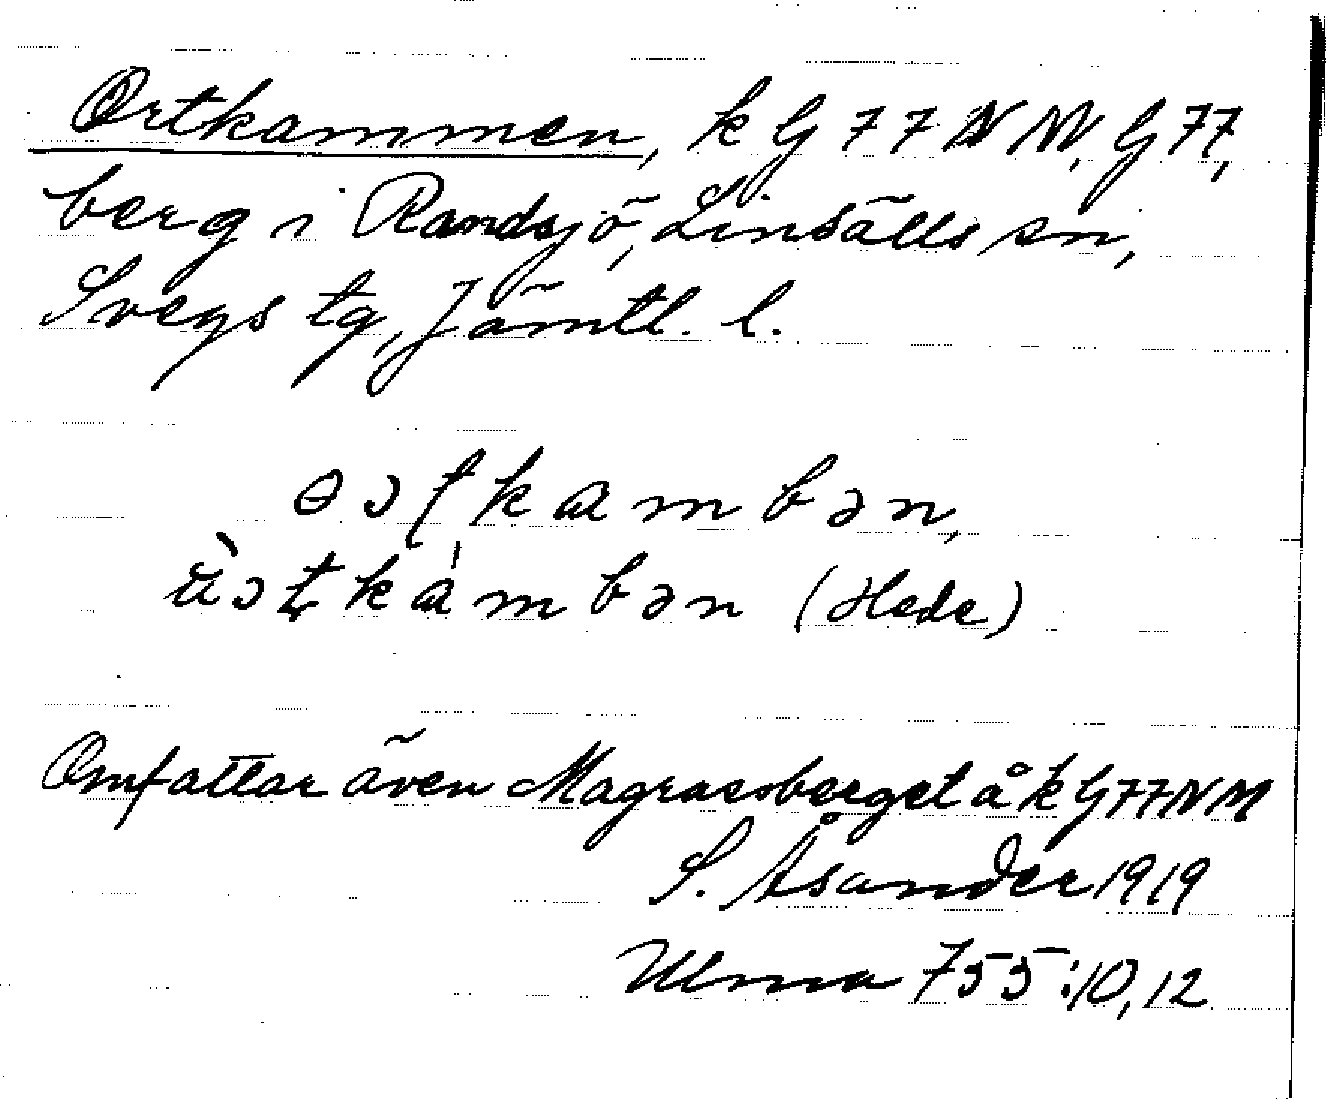 Ortkammen, k G 77 NM, G 77,
berg i Randsjö, Linsälls sn,
Svegs tg, Jämtl. l.
kambən,
kámbən (Hede)
Omfattar även Magrasberget å k G 77 NM
S. Åsander 1919
Ulma 755:10,12